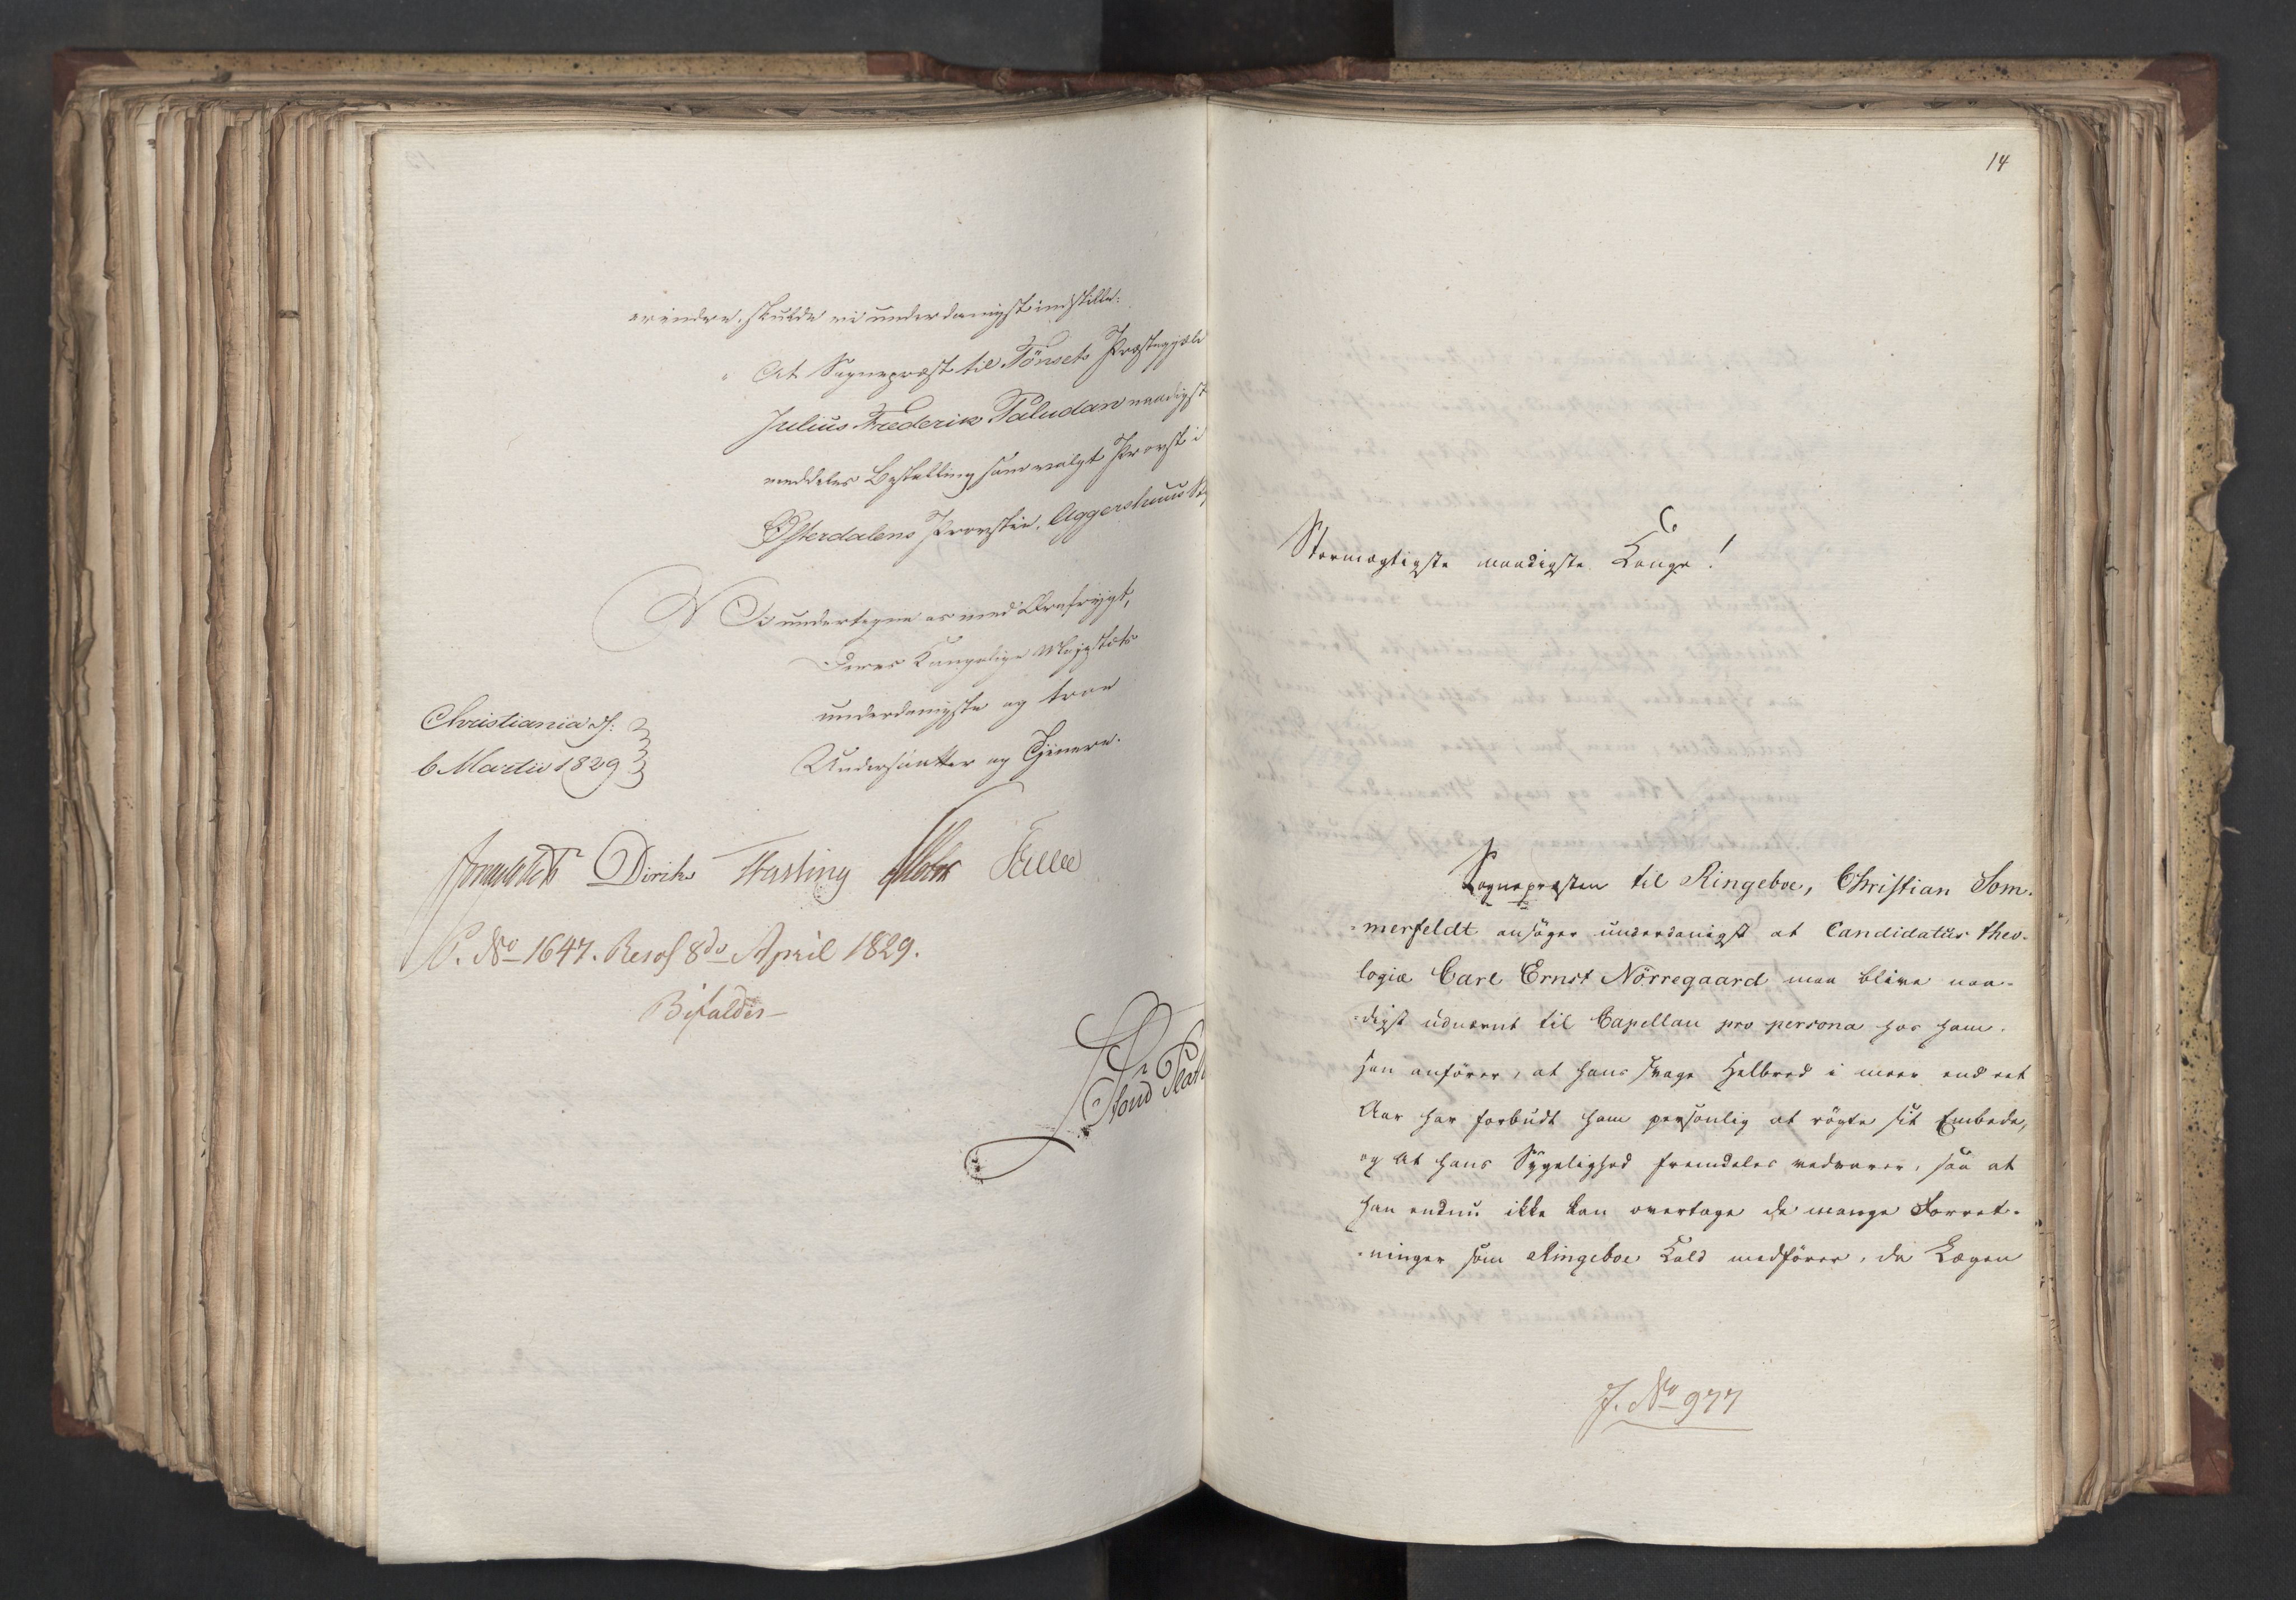 erindre, skulde vi underdanigst indstille:
At Sognepræst til Tönsets Præstegjeld
Julius Frederik Paludan naadigst
meddeles Bestalling som valgt Provst i
Østerdalens Provstie, Aggershuus
Vi undertegne os med Ærefrygt,
Deres Kongelige Majestets
underdanigste og troe
Undersaatter og Tjenere.
Christiania d:
6 Martii 1829
Diriks Fasting Holst
C. No 1647. Resol 8de April 1829.
Bifaldes
14
Stormægtigste naadigste Konge!
Sognepræsten til Ringeboe, Christian Som-
merfeldt ansöger underdanigst at Candidatus theo-
logiæ Carl Ernst Nörregaard maa blive naa-
digst udnævnt til Capellan pro persona hos ham.
Han anförer, at hans svage Helbred i meer end eet
Aar har forbudt ham personlig at rögte sit Embede,
og at hans Sygelighed fremdeles vedvarer, saa at
han endnu ikke kan overtage de mange Forret-
ninger som Ringeboe Kald medförer, da Lægen
J. No 977